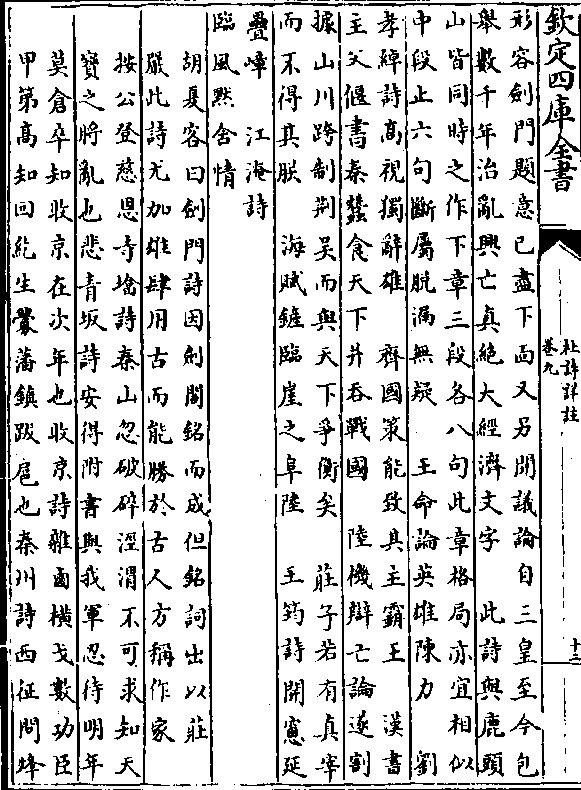 欽定四庫全書
杜詩詳註
卷九
十二
形容劍門題意已盡下面又另開議論自三皇至今包
舉數千年治亂興亡真絕大經濟文字 此詩與鹿頭
山皆同時之作下章三段各八句此章格局亦宜相似
中段止六句斷屬脫漏無疑 王命論英雄陳力 劉
孝綽詩高視獨辭雄 齊國策能致其主霸王 漢書
主父偃書秦蠶食天下并吞戰國 陸機辯亡論遂割
據山川跨制荆吳而與天下爭衡矣 莊子若有真宰
而不得其朕 海賦鏟臨崖之阜陸 王筠詩開窻延
疊嶂 江淹詩
臨風黙含情
胡夏客曰劍門詩因劍閣銘而成但銘詞出以莊
嚴此詩尤加雄肆用古而能勝於古人方稱作家
按公登慈恩寺塔詩秦山忽破碎涇渭不可求知天
寶之將亂也悲青坂詩安得附書與我軍忍待明年
莫倉卒知收京在次年也收京詩雜虜橫戈數功臣
甲第高知回紇生釁藩鎮跋扈也秦州詩西征問烽